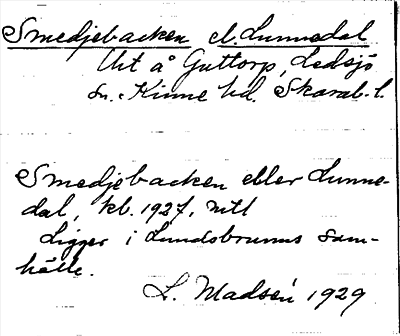 Smedjebacken el. Lunnedal
Utt å Guttorp, Ledsjö
sn. Kinne hd. Skarab. l.
Smedjebacken eller Lunne-
dal, kb. 1927, nitt
Ligger i Lundsbrunns sam-
hälle.
L. Madsén 1929